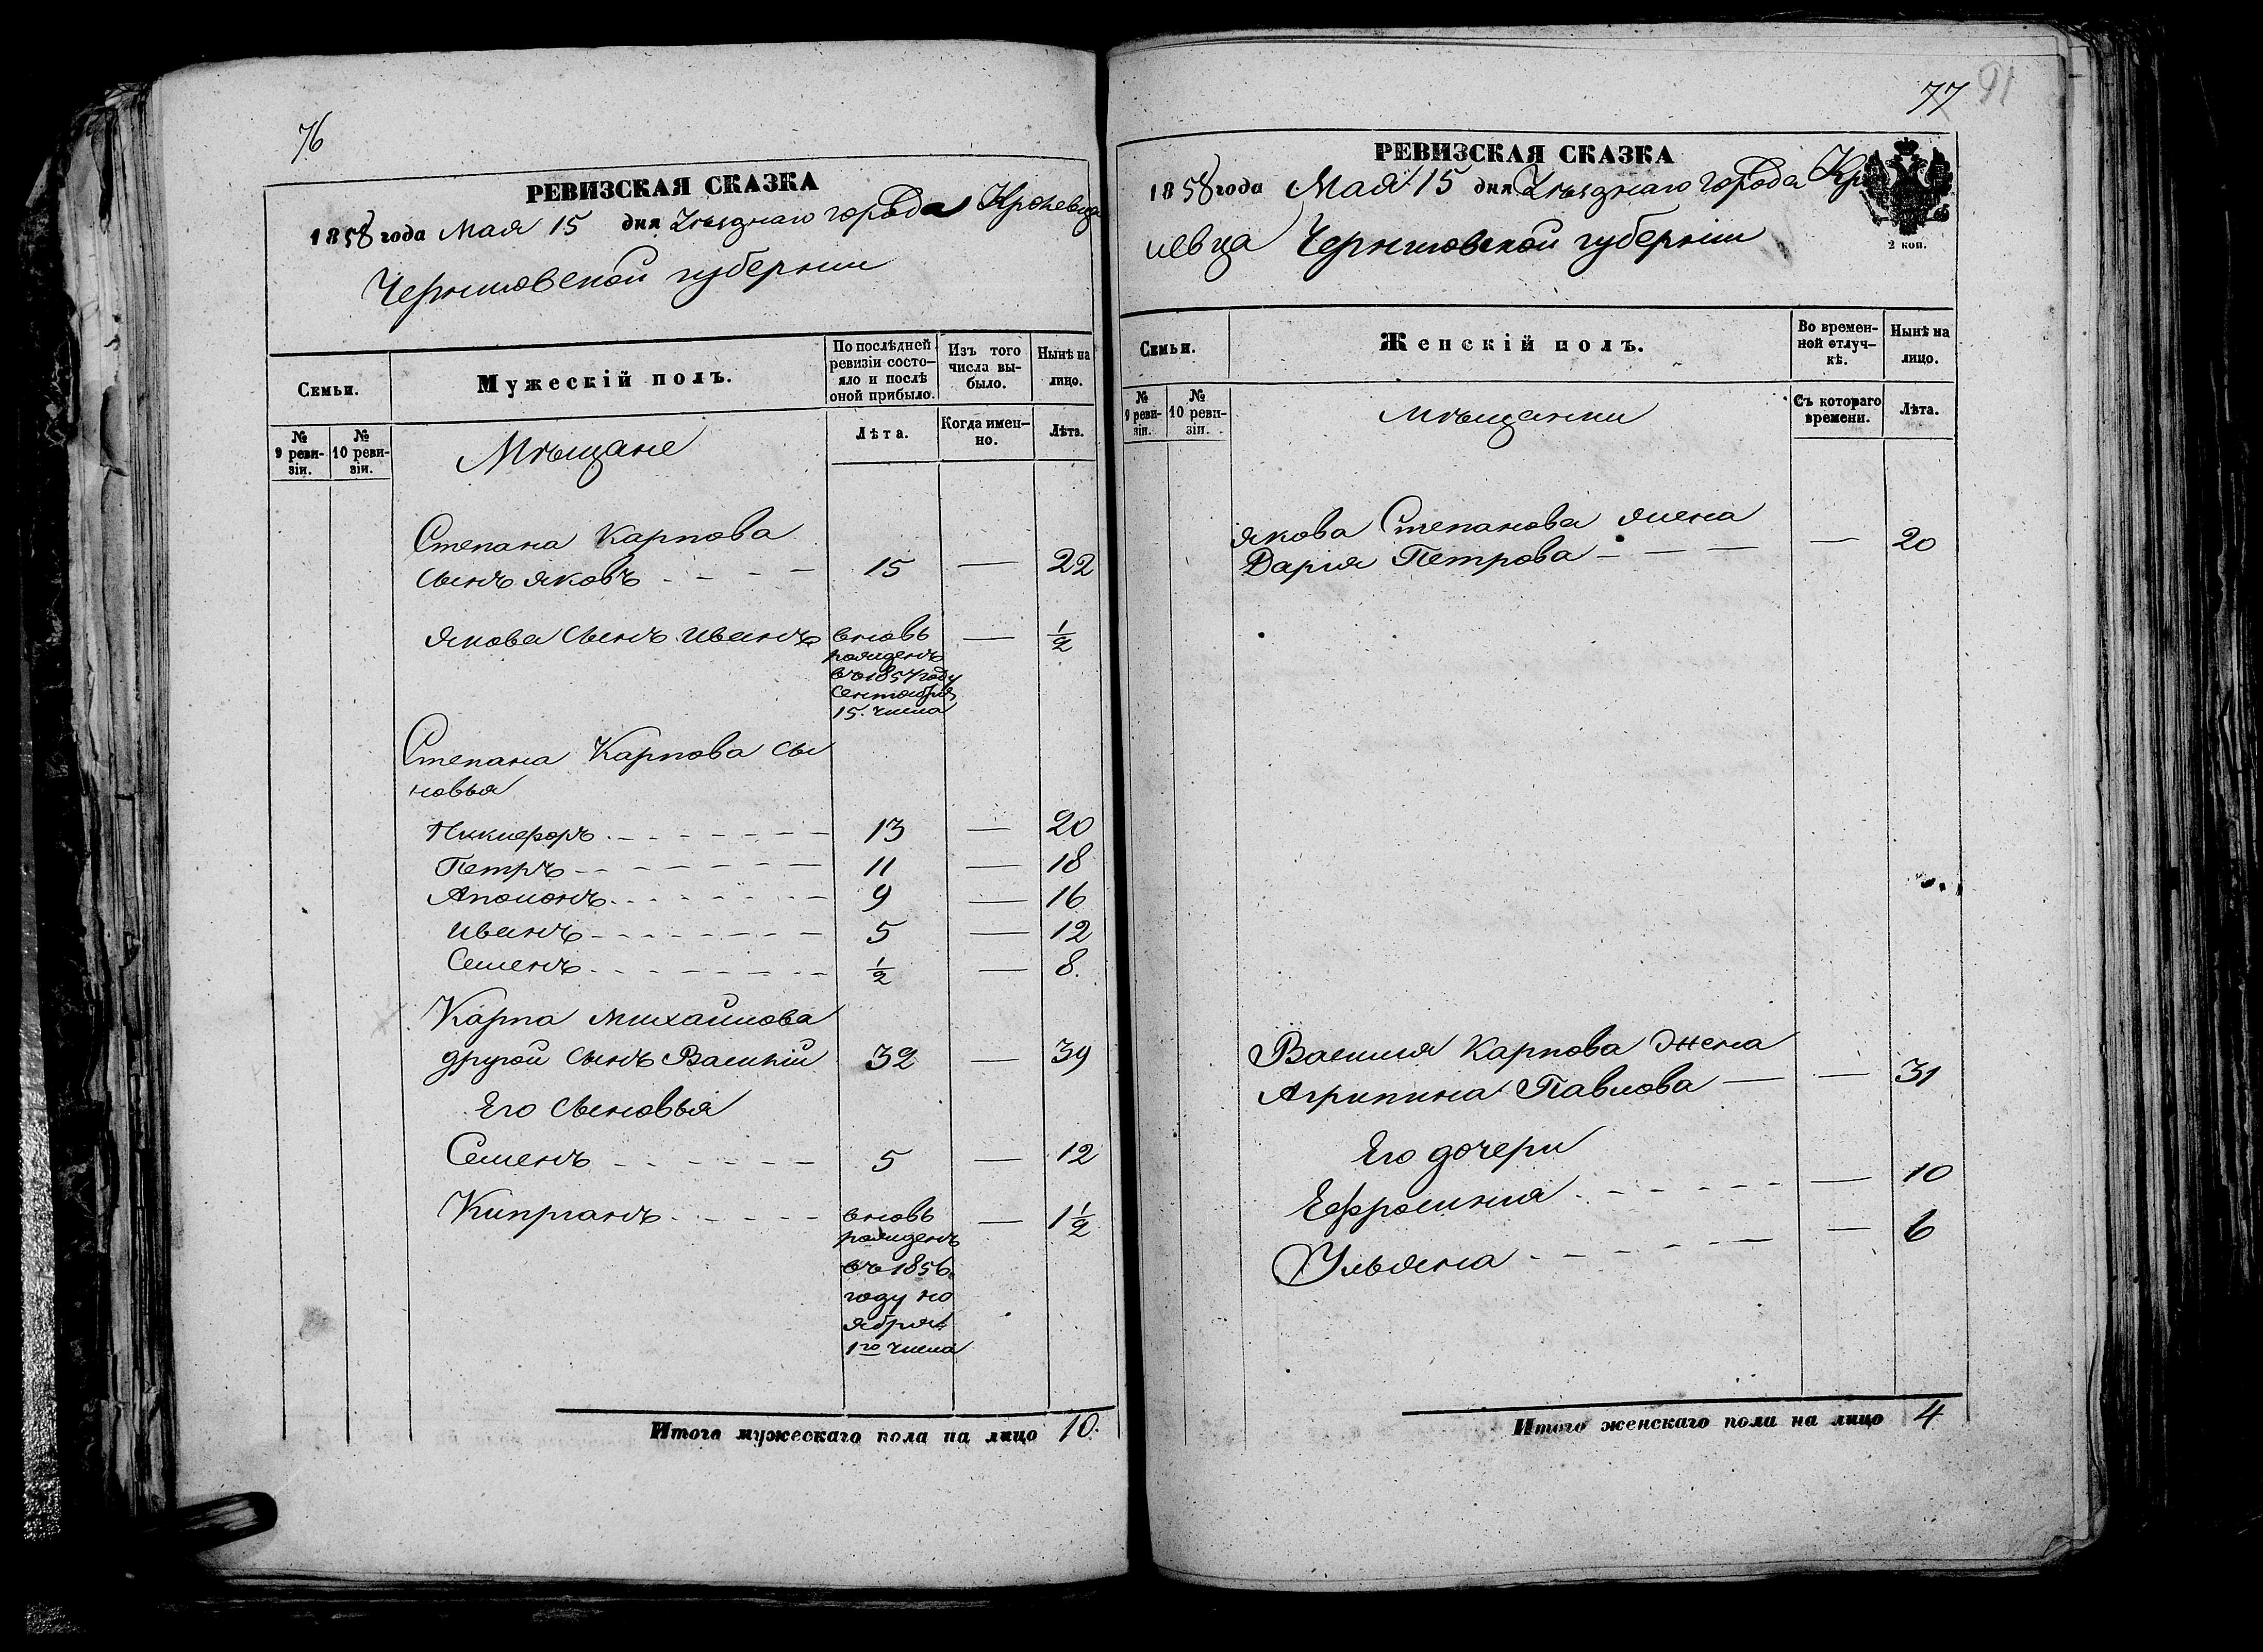 76
РЕВИЗСКАЯ СКАЗКА
1858 года Мая 15 дня Уѣзднаго города Кролевца
Черниговской губернии
Семьи.
Мужескій полъ.
По послѣдней ревизіи состо-
яло и послѣ
оной прибыло.
Изъ того
числа вы-
было.
Нынѣ на
лицо.
№
9 реви-
зіи.
№
10 реви-
зіи.
Мѣщане
Лѣта.
Когда имен-
но.
Лѣта.
Степана Карпова
сынъ Яковъ 15 — 22
Якова сынъ Иванъ вновь — 1/2
рожденъ
въ 1857 году
сентября
15. числа
Степана Карпова сы
новья
Никифоръ 13 — 20
Петръ 11 — 18
Аполонъ 9 — 16
Иванъ 5 — 12
Семенъ 1/2 — 8.
Карпа Михайлова
другой сынъ Василій 32 — 39
Его сыновья
Семенъ 5 — 12
Кипріанъ вновь — 1 1/2
рожденъ
въ 1856
году но
ября
1го числа
Итого мужескаго пола на лицо 10.
77
91
РЕВИЗСКАЯ СКАЗКА
1858 года Мая 15 дня Уѣзднаго города Кро
левца Черниговской губернии
2 коп.
Семьи.
Женскій полъ.
Во времен-
ной отлуч-
кѣ.
Нынѣ на
лицо.
№
9 реви-
зіи.
№
10 реви-
зіи.
Мѣщанки
Съ котораго
времени.
Лѣта.
Якова Степанова жена
Дарія Петрова — 20
Василія Карпова жена
Агрипина Павлова — 31
Его дочери
Ефросинія — 10
Ульяна — 6
Итого женскаго пола на лицо 4